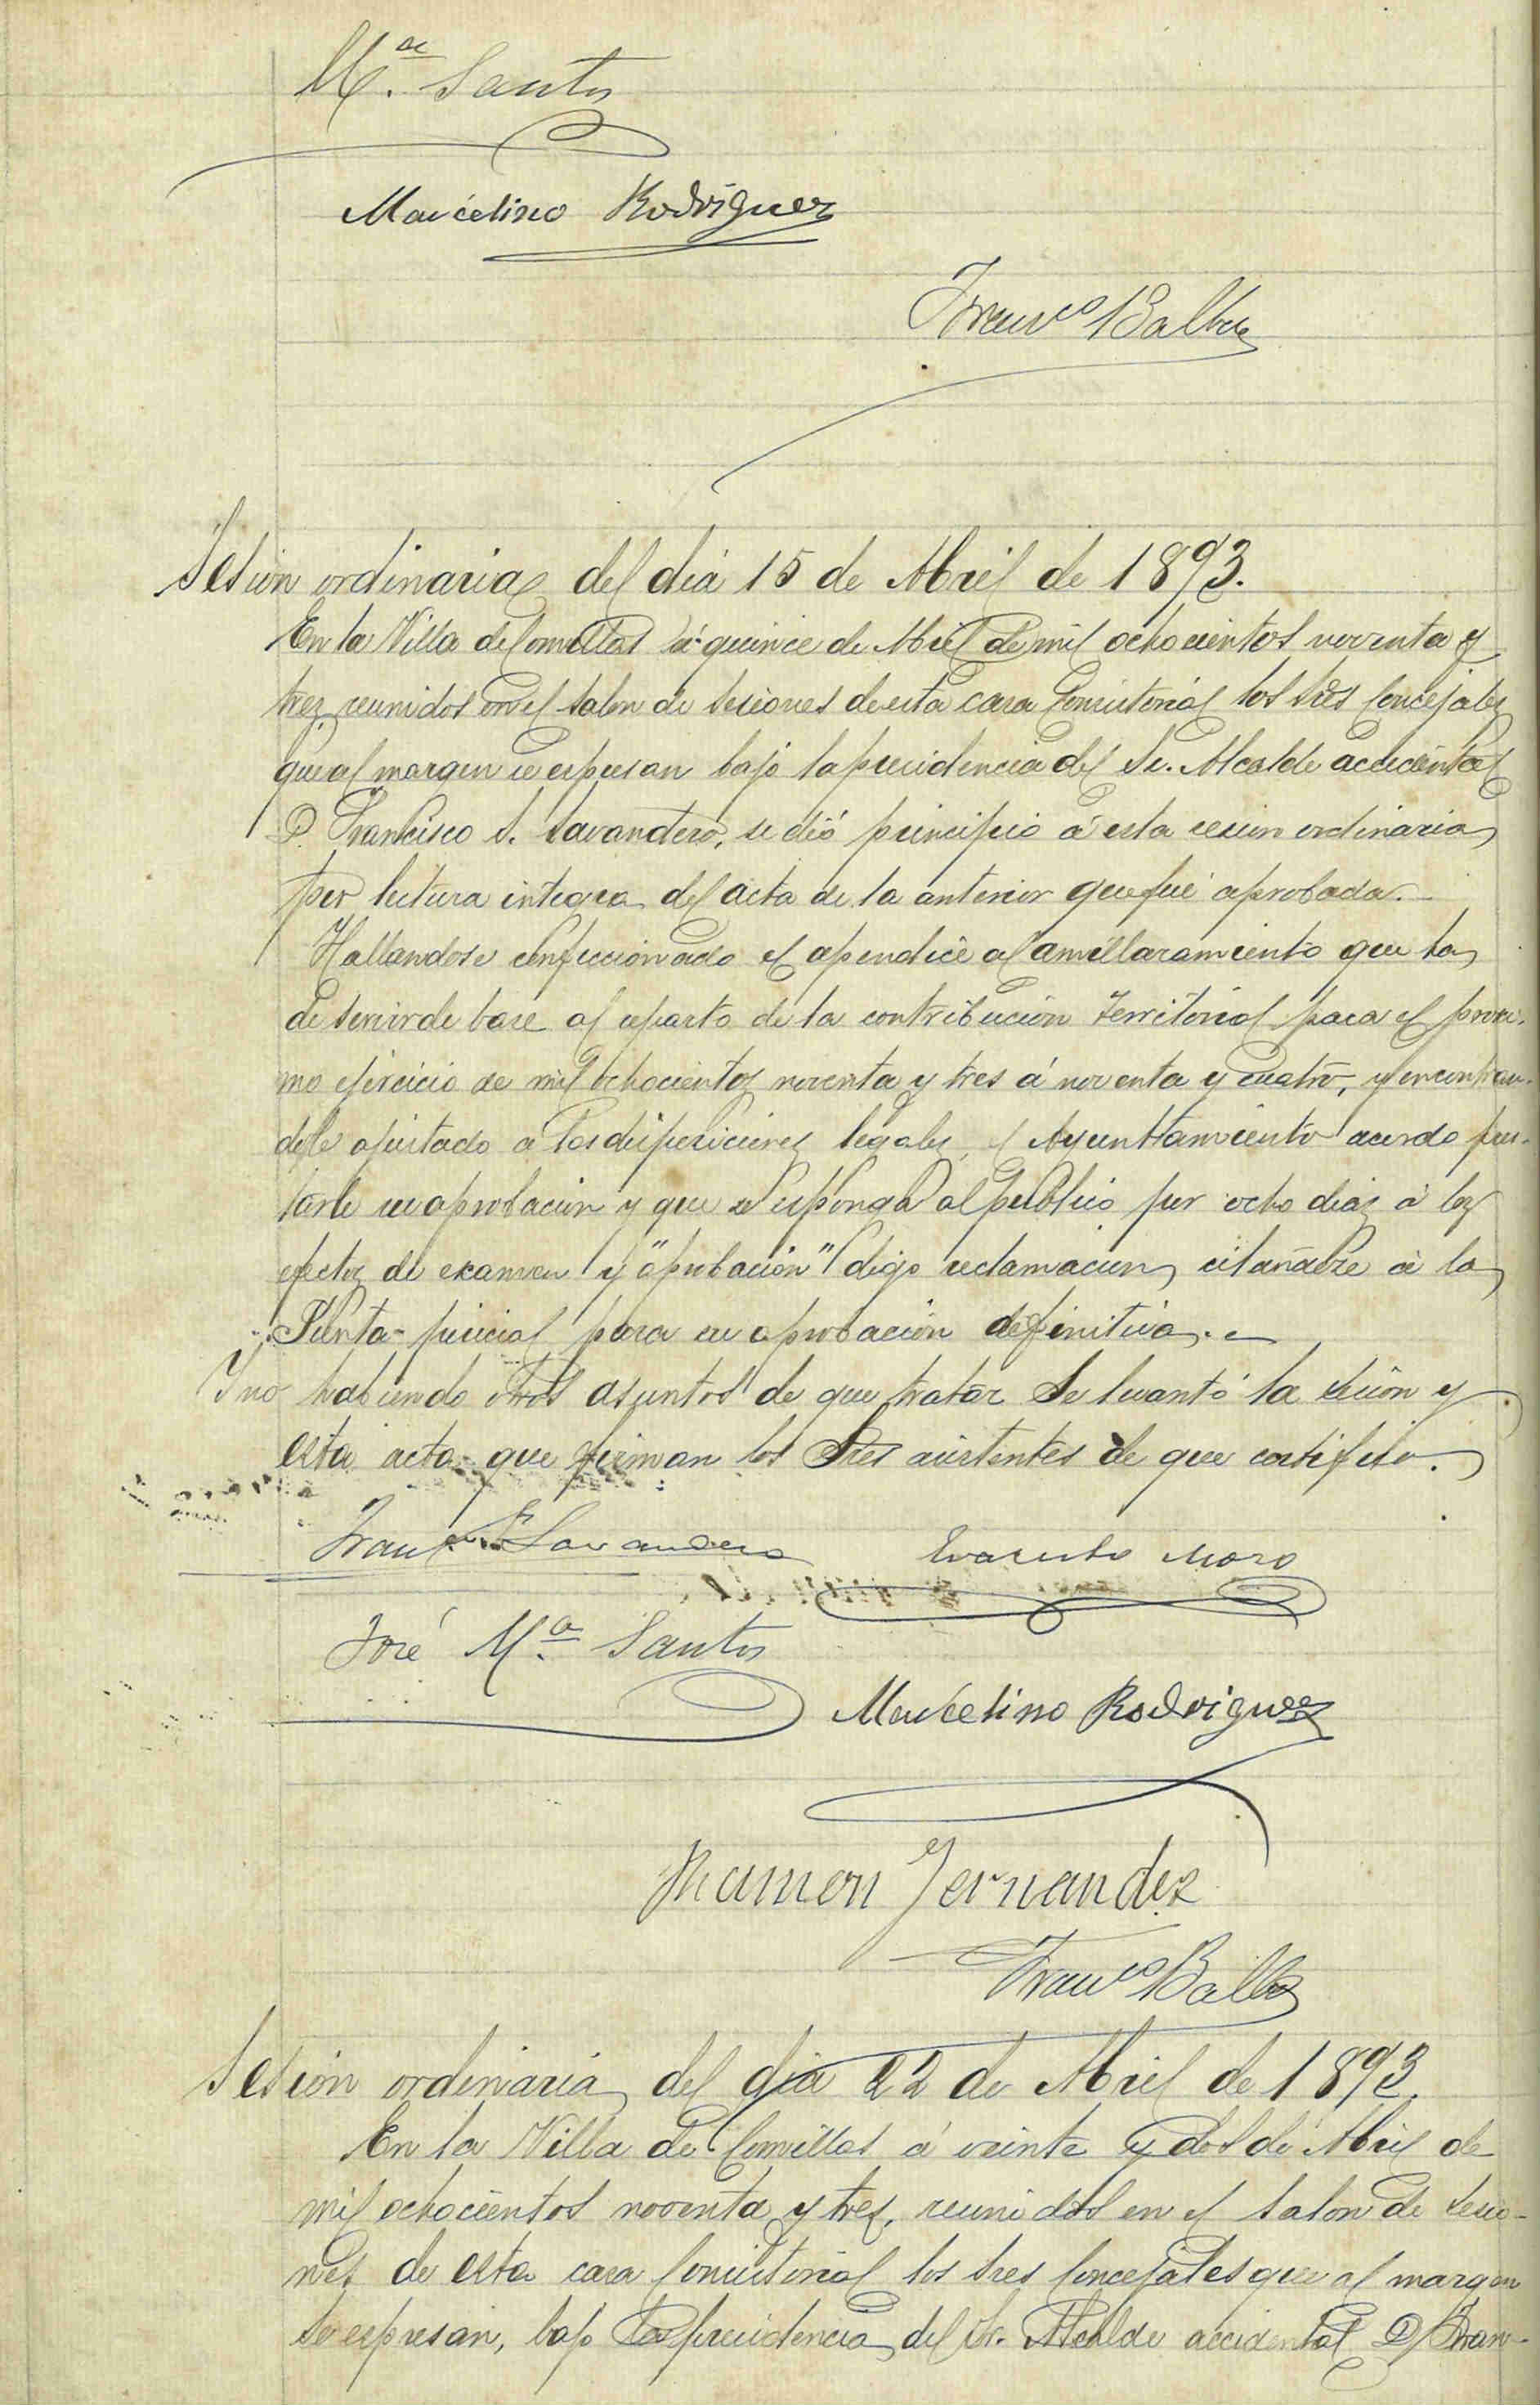 M.ª Santos
Marcelino Rodriguez
Franco Balbas
Sesion ordinaria del dia 15 de Abril de 1893.
En la Villa de Comillas á quince de Abril de mil ochocientos noventa y
tres, reunidos en el salon de sesiones de esta casa Consistorial los Sres Concejales
que al margen se espresan bajo la presidencia del Sr. Alcalde accidental
D. Francisco S. Lavandero, se dió principio á esta sesion ordinaria
por lectura integra del acta de la anterior que fué aprobada.
Hallandose confeccionado el apendice al amillaramiento que ha
de servir de base al reparto de la contribución Territorial para el proxi-
mo ejercicio de mil ochocientos noventa y tres á noventa y cuatro, y encontran-
dole ajustado a las disposiciones legales, el Ayuntamiento acordo pres-
tarle su aprobacion y que se esponga al publico por ocho dias á los
efectos de examen y "aprobacion" digo reclamacion, á la
Junta pericial para su aprobación definitiva.
Y no habiendo otros asuntos de que tratar se levantó la sesión y
esta acta que firman los Sres asistentes de que certifico.
Franco S. Lavandero Evaristo Moro
José M.ª Santos
Marcelino Rodriguez
Ramon Fernandez
Franco Balbas
Sesion ordinaria del dia 22 de Abril de 1893.
En la Villa de Comillas á veinte y dos de Abril de
mil ochocientos noventa y tres, reunidos en el salon de sesio-
nes de esta casa Consistorial los Sres Concejales que al margen
se espresan, bajo la presidencia del Sr. Alcalde accidental D. Fran-